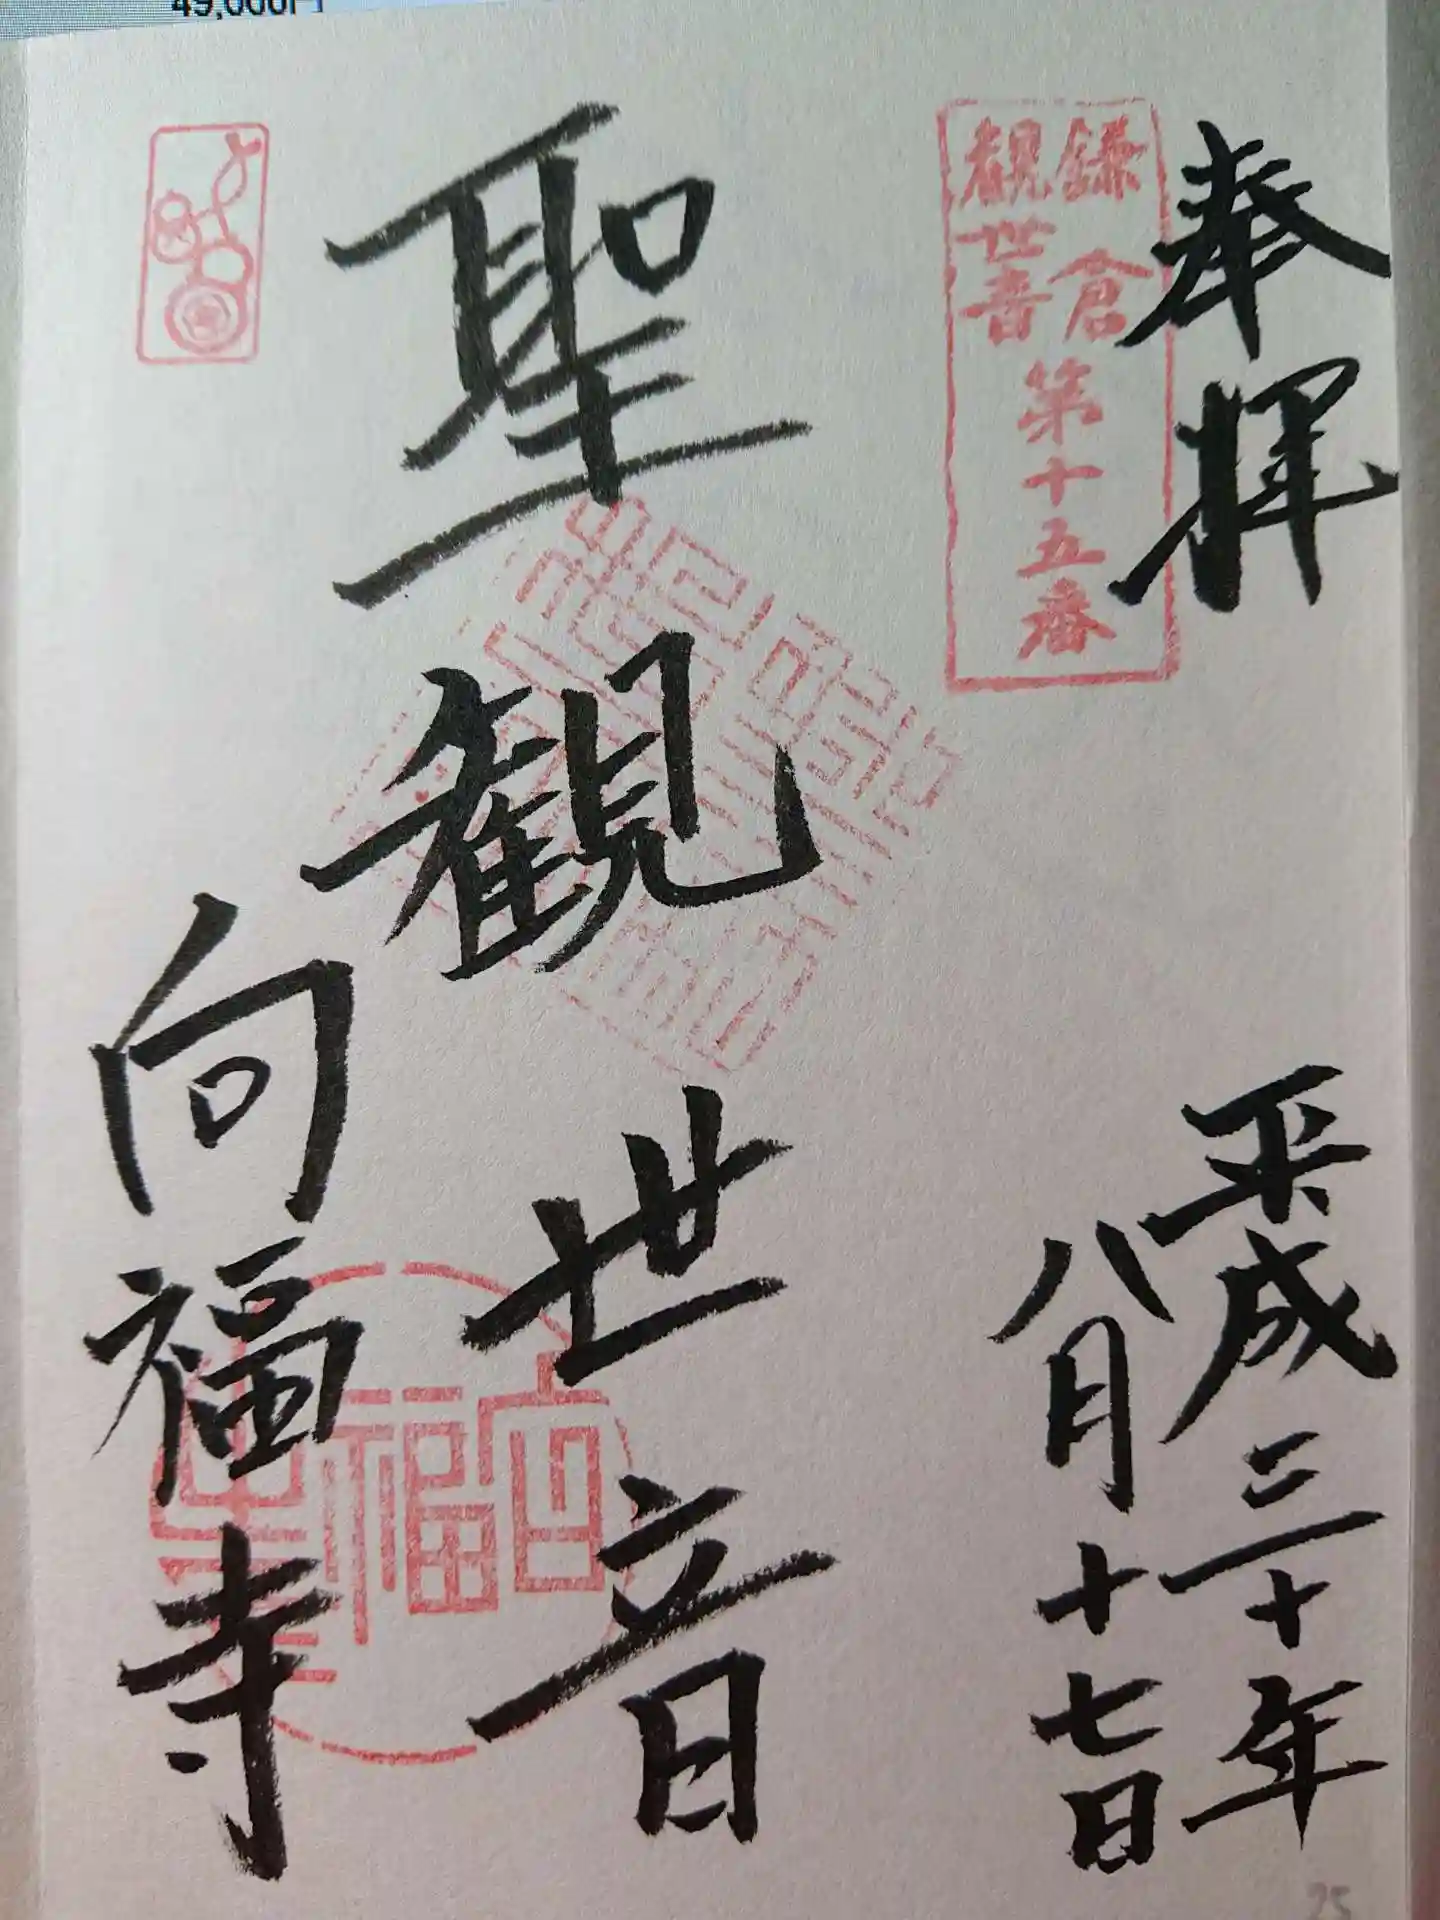 49,000円
奉拝
鎌倉
観世音
第十五番
平成三十年
八月十七日
聖観世音
向福寺
向
福
寺
25